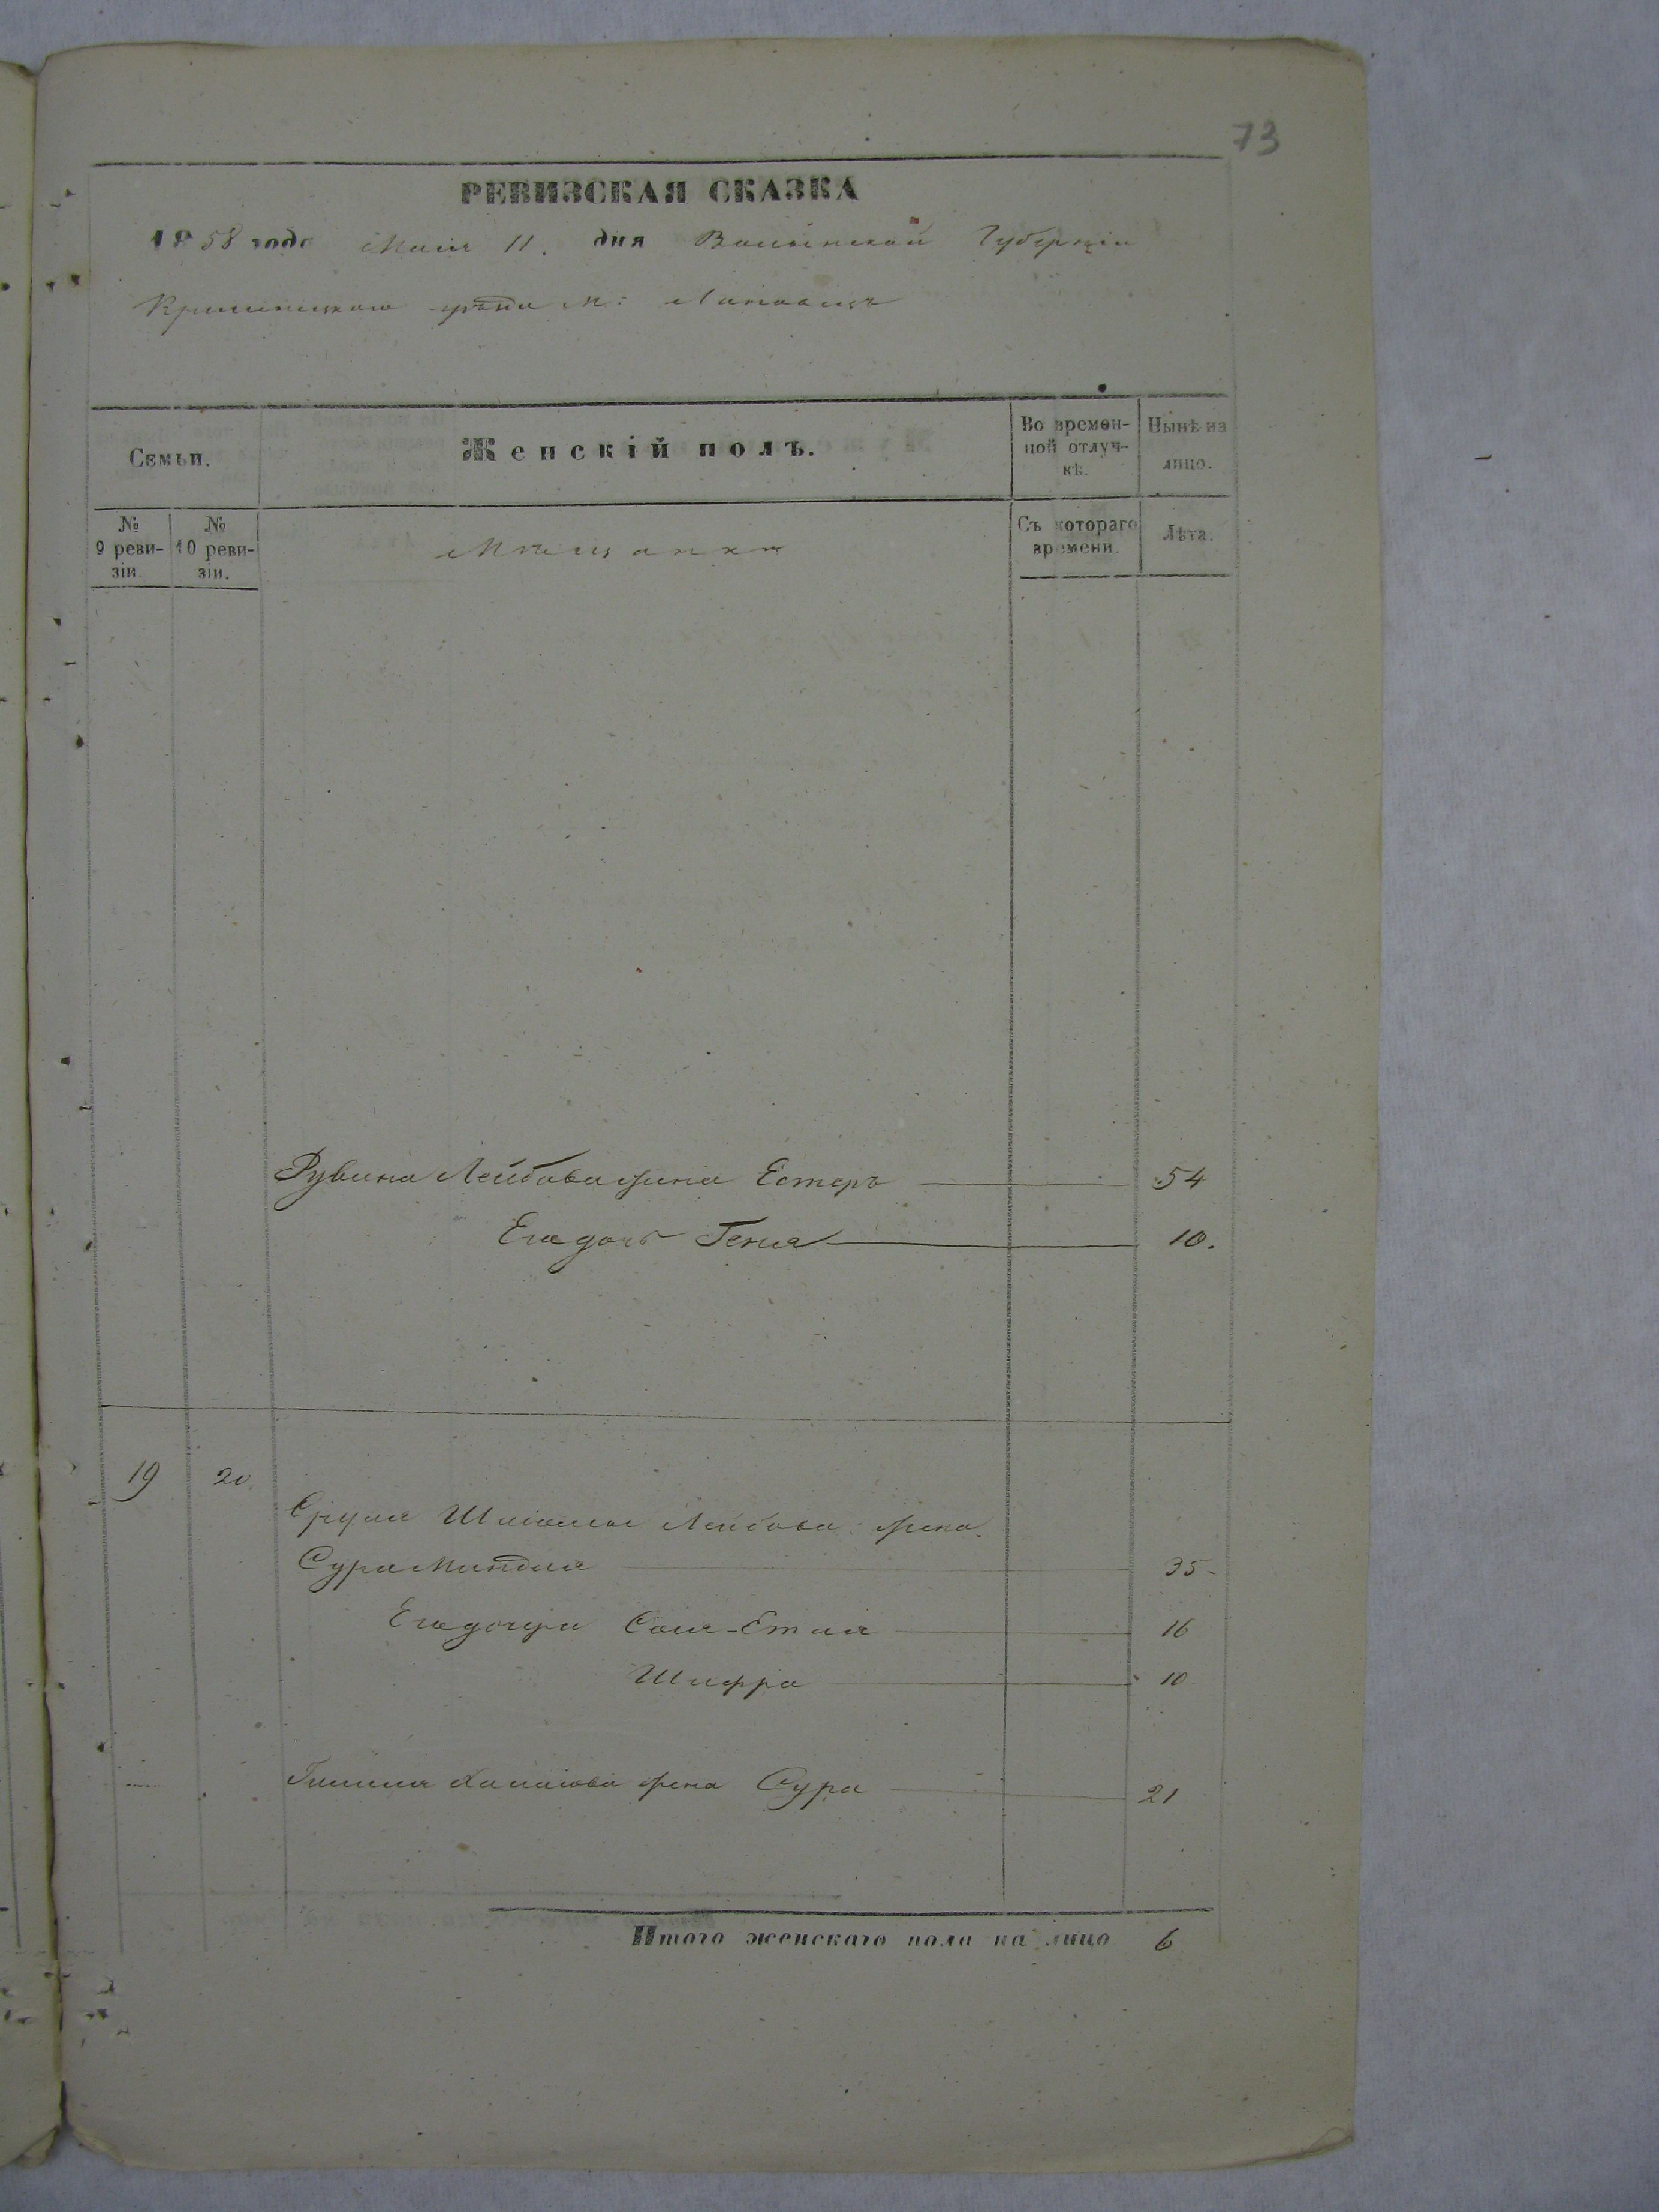 73
РЕВИЗСКАЯ СКАЗКА
1858 года Маія 11. дня Волынской Губерніи
Кременецкаго уѣзда М: Лановецъ
Семьи.
Женскій полъ.
Во времен-
ной отлуч-
кѣ.
Нынѣ на
лицо.
№
9 реви-
зіи.
№
10 реви-
зіи.
Мѣщанки
Съ котораго
времени.
Лѣта.
Рувина Лейбова жена Естеръ 54
Его дочь Геня 10.
19 20.
Шліомы Лейбова жена
Сура Миндля 35
Его дочери Сося-Етля 16
Шифра 10
жена Сура 21
Итого женскаго пола на лицо 6